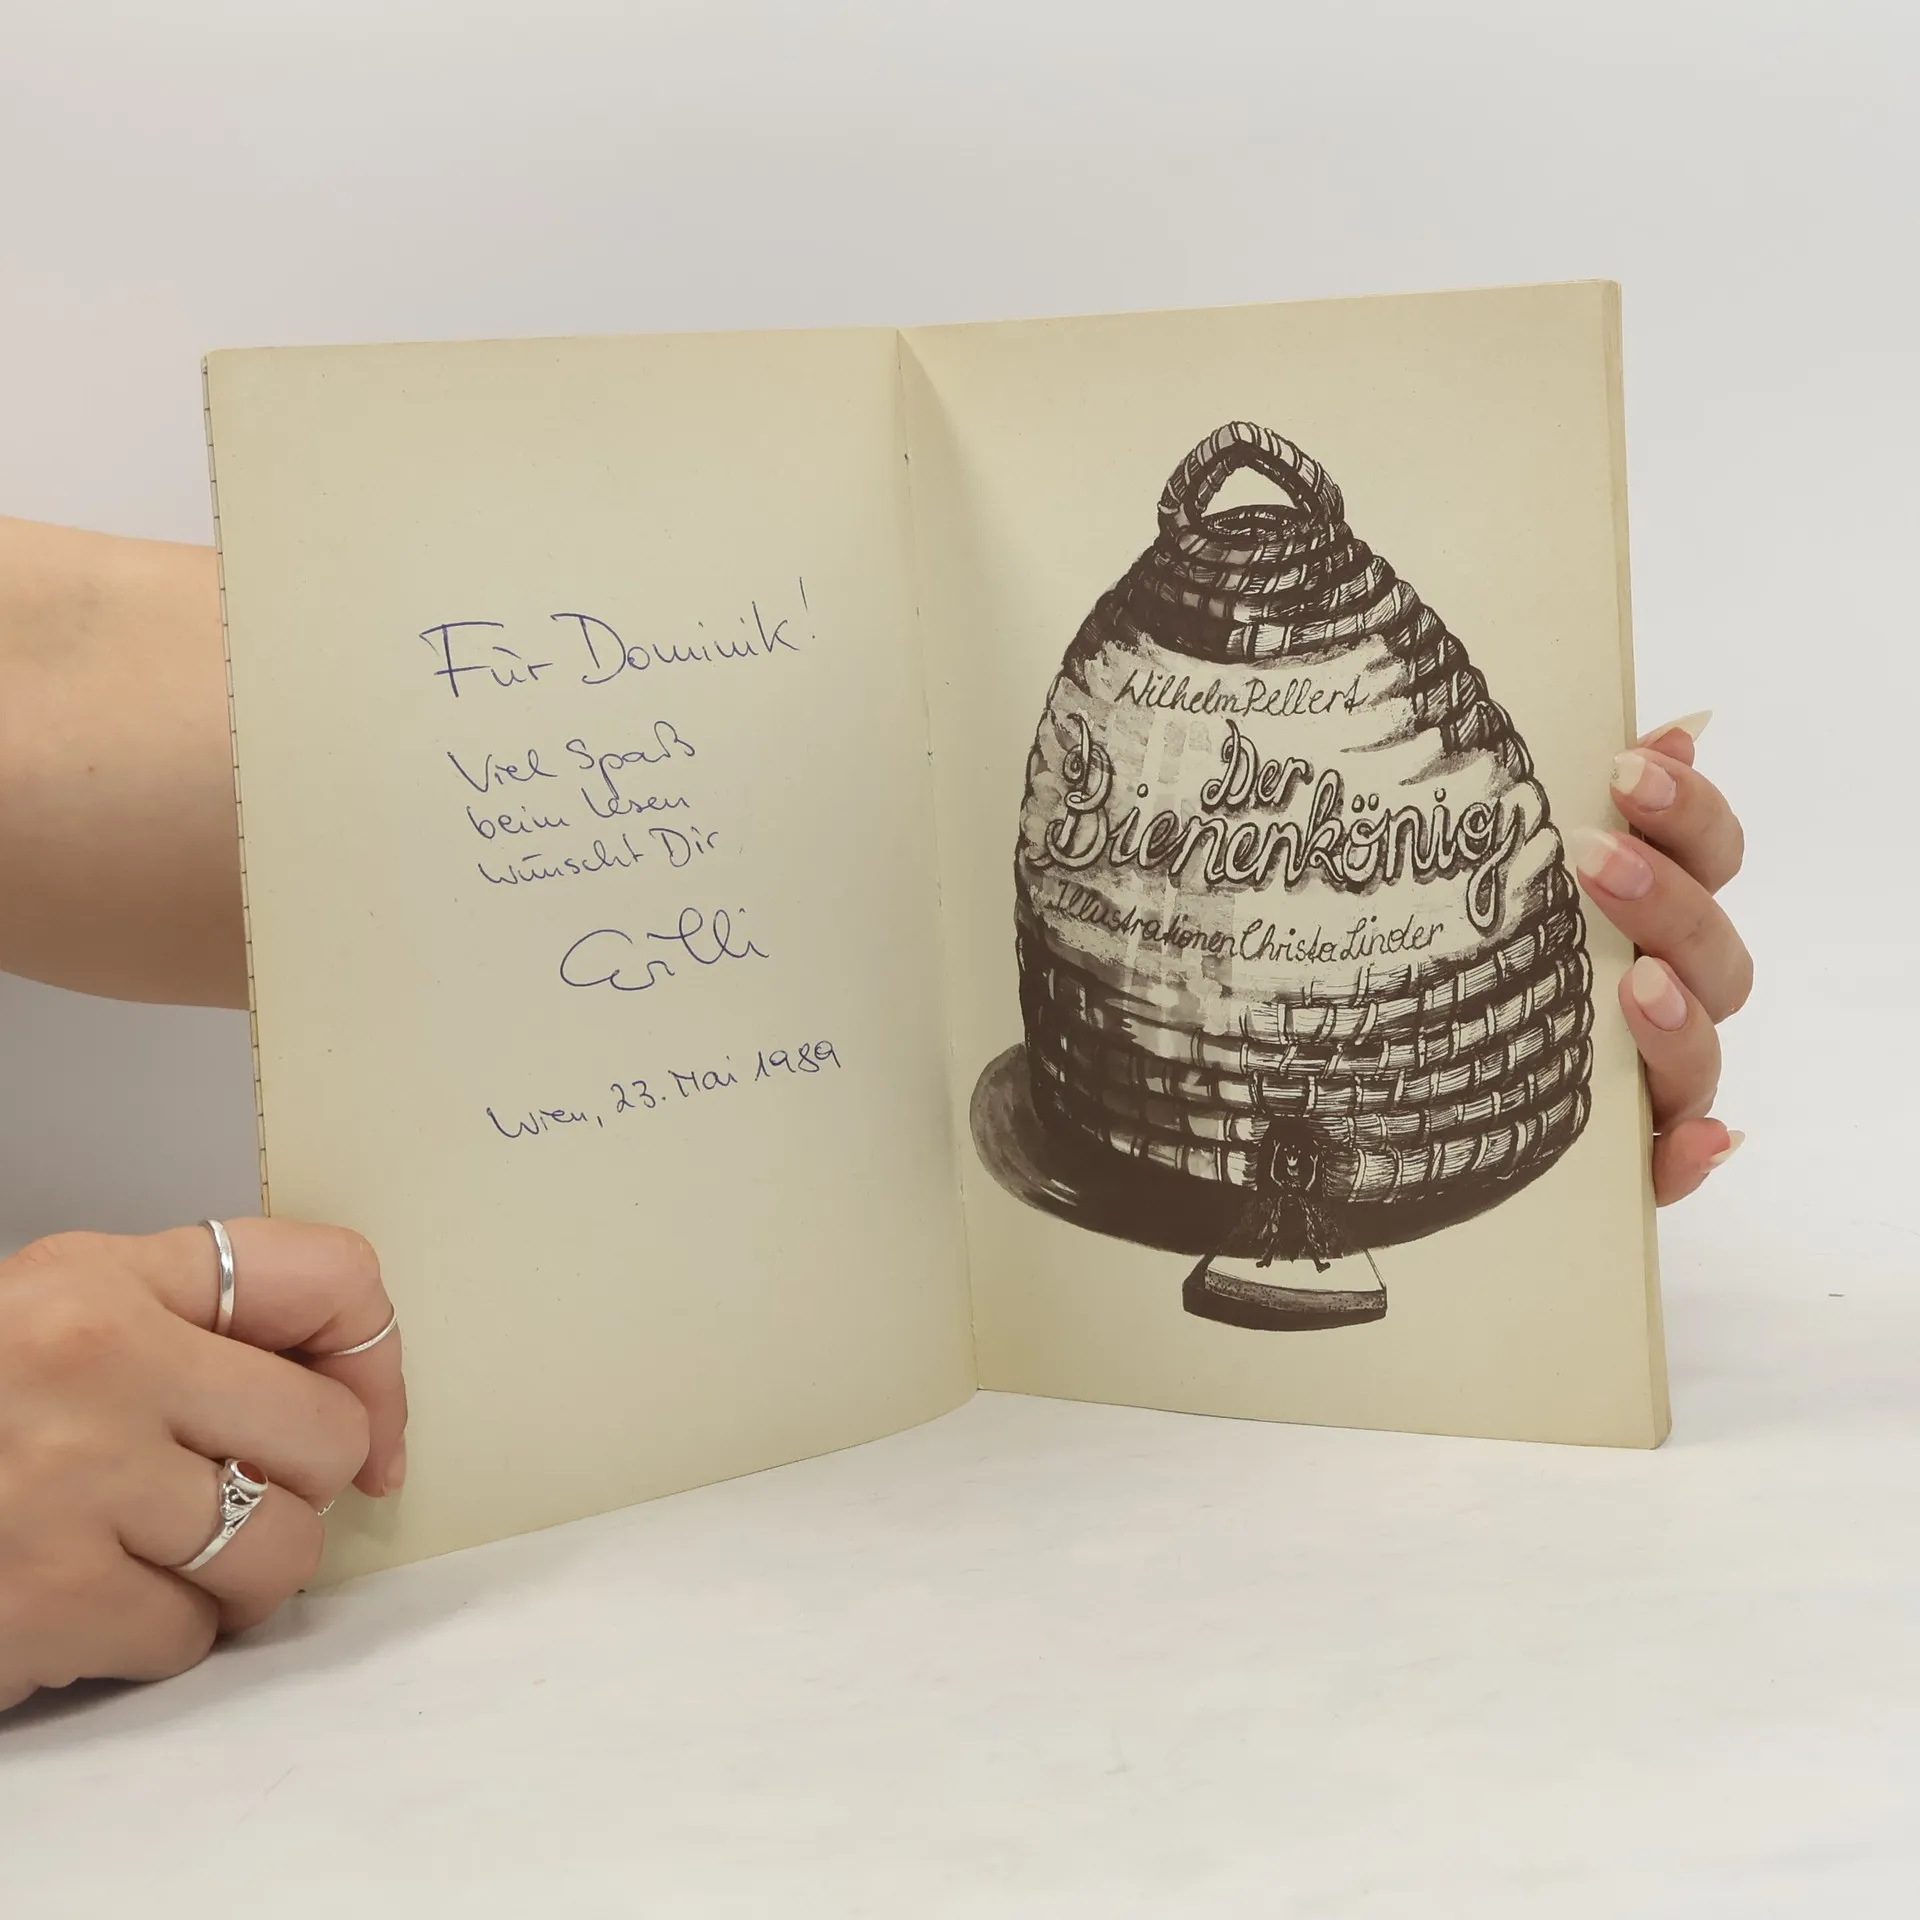 Für Dominik!
Viel Spaß
beim Lesen
wünscht Dir
Willi
Wien, 23. Mai 1989
Wilhelm Pellert
Der
Bienenkönig
Illustrationen Christa Linder